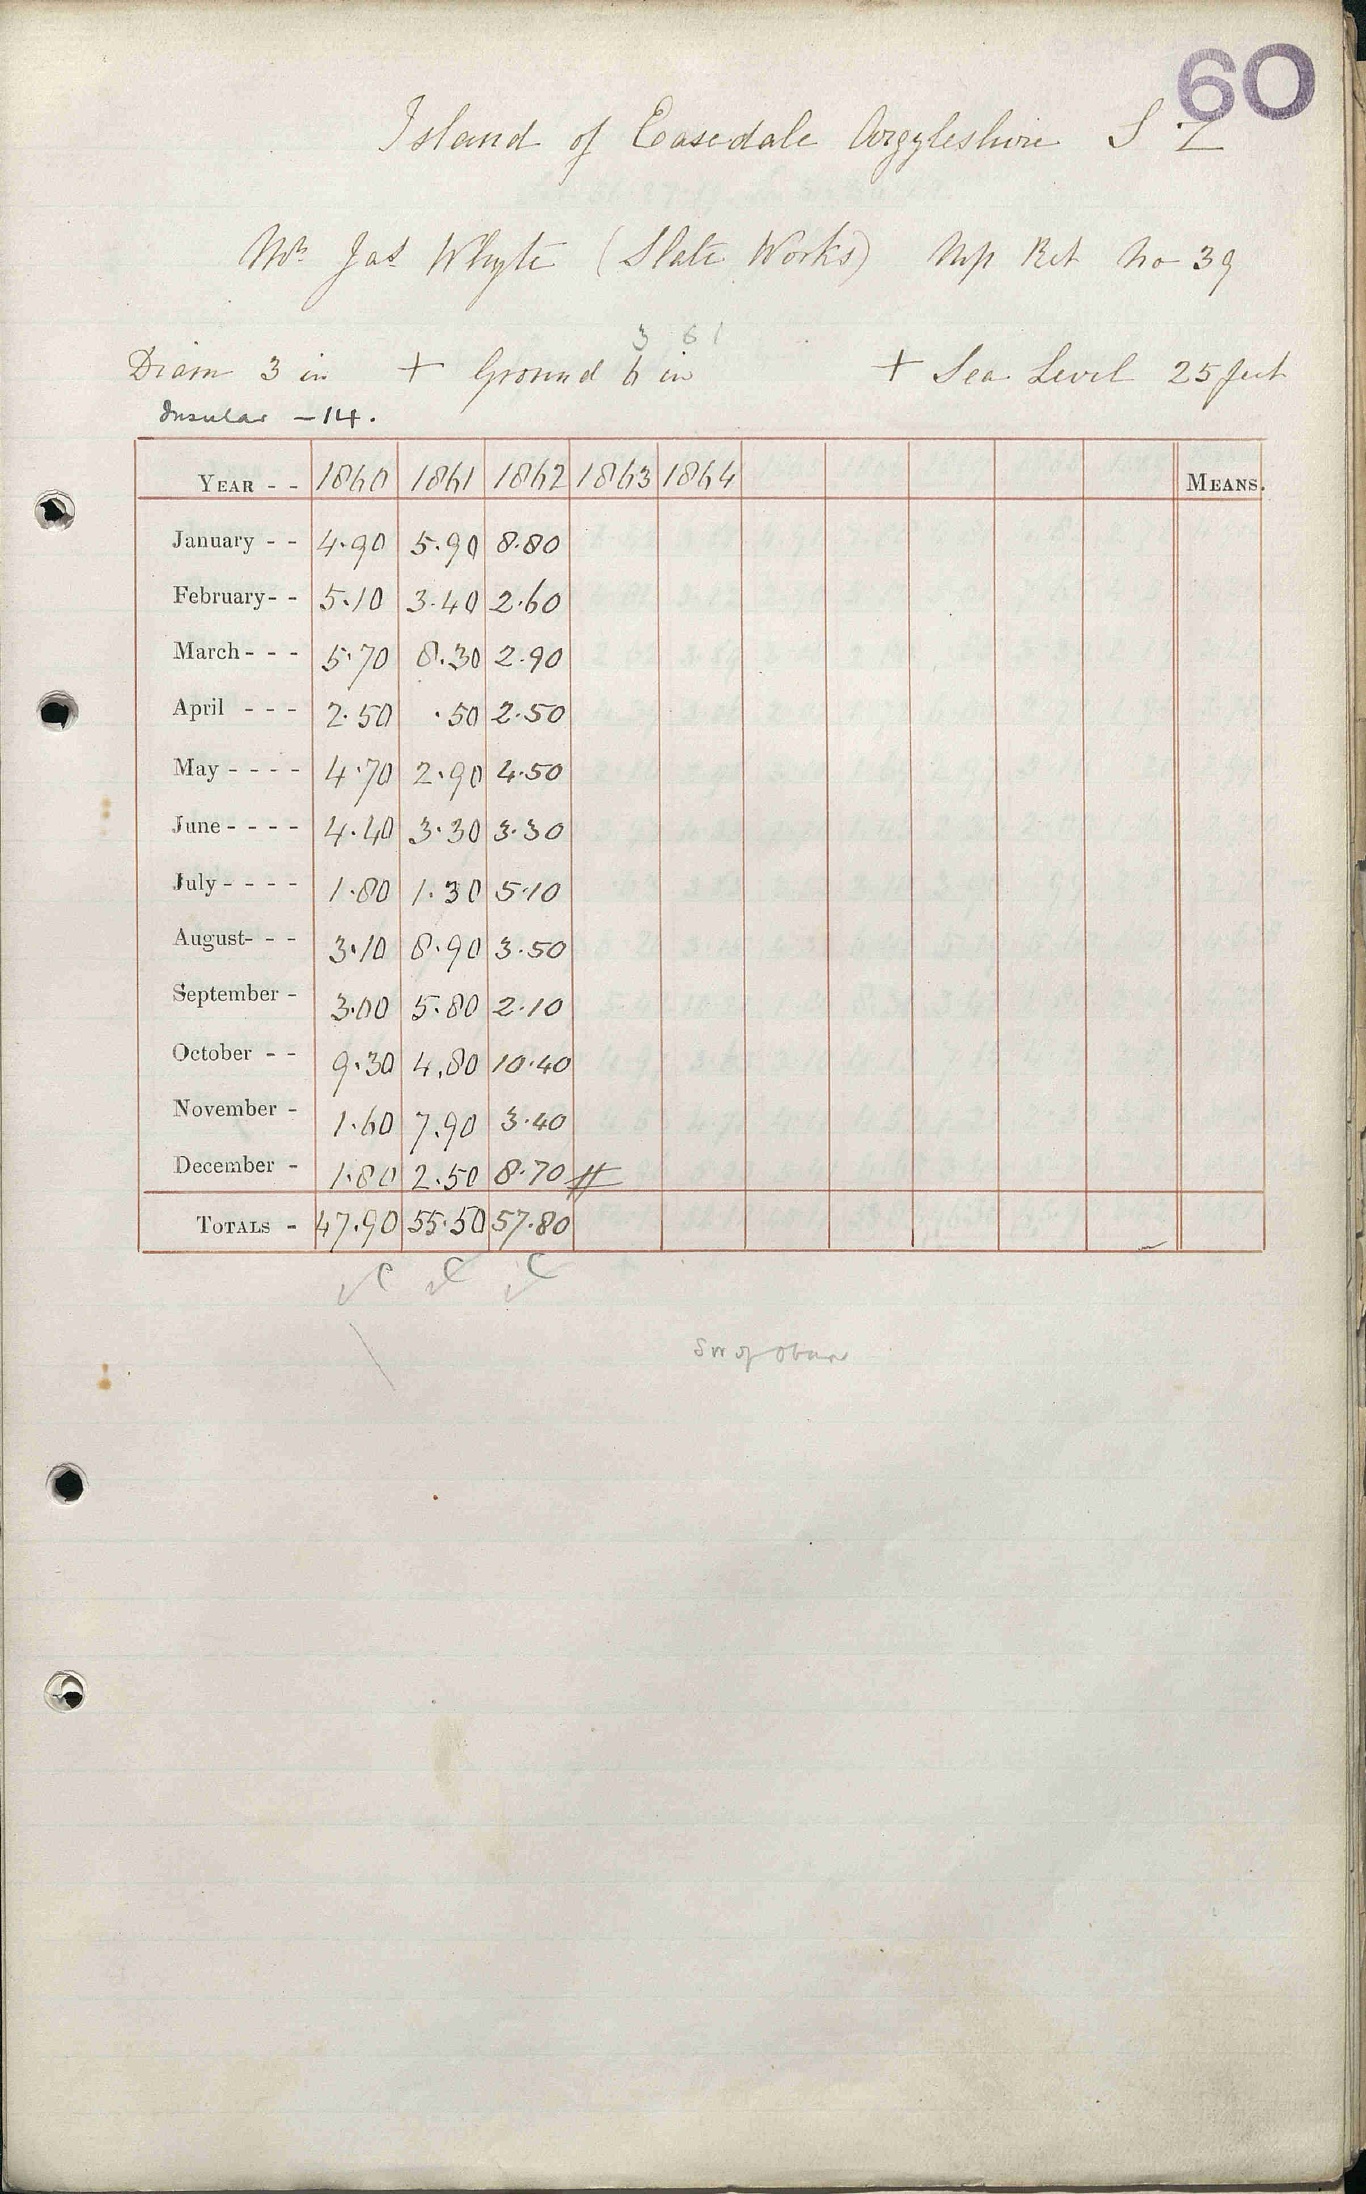 60
Island of Easedale Argyleshire S Z
Mr. Jas Whyte (Slate Works) Mp Ret No 39
3 61
Diam 3 in + Ground 6 in + Sea Level 25 feet
Insular - 14.
YEAR - - 1860 1861 1862 1863 1864 MEANS.
January - - 4.90 5.90 8.80
February - - 5.10 3.40 2.60
March - - - 5.70 8.30 2.90
April - - - 2.50 .50 2.50
May - - - - 4.70 2.90 4.50
June - - - - 4.40 3.30 3.30
July - - - - 1.80 1.30 5.10
August - - - 3.10 8.90 3.50
September - 3.00 5.80 2.10
October - - 9.30 4.80 10.40
November - 1.60 7.90 3.40
December - 1.80 2.50 8.70
TOTALS - 47.90 55.50 57.80
SW of Oban